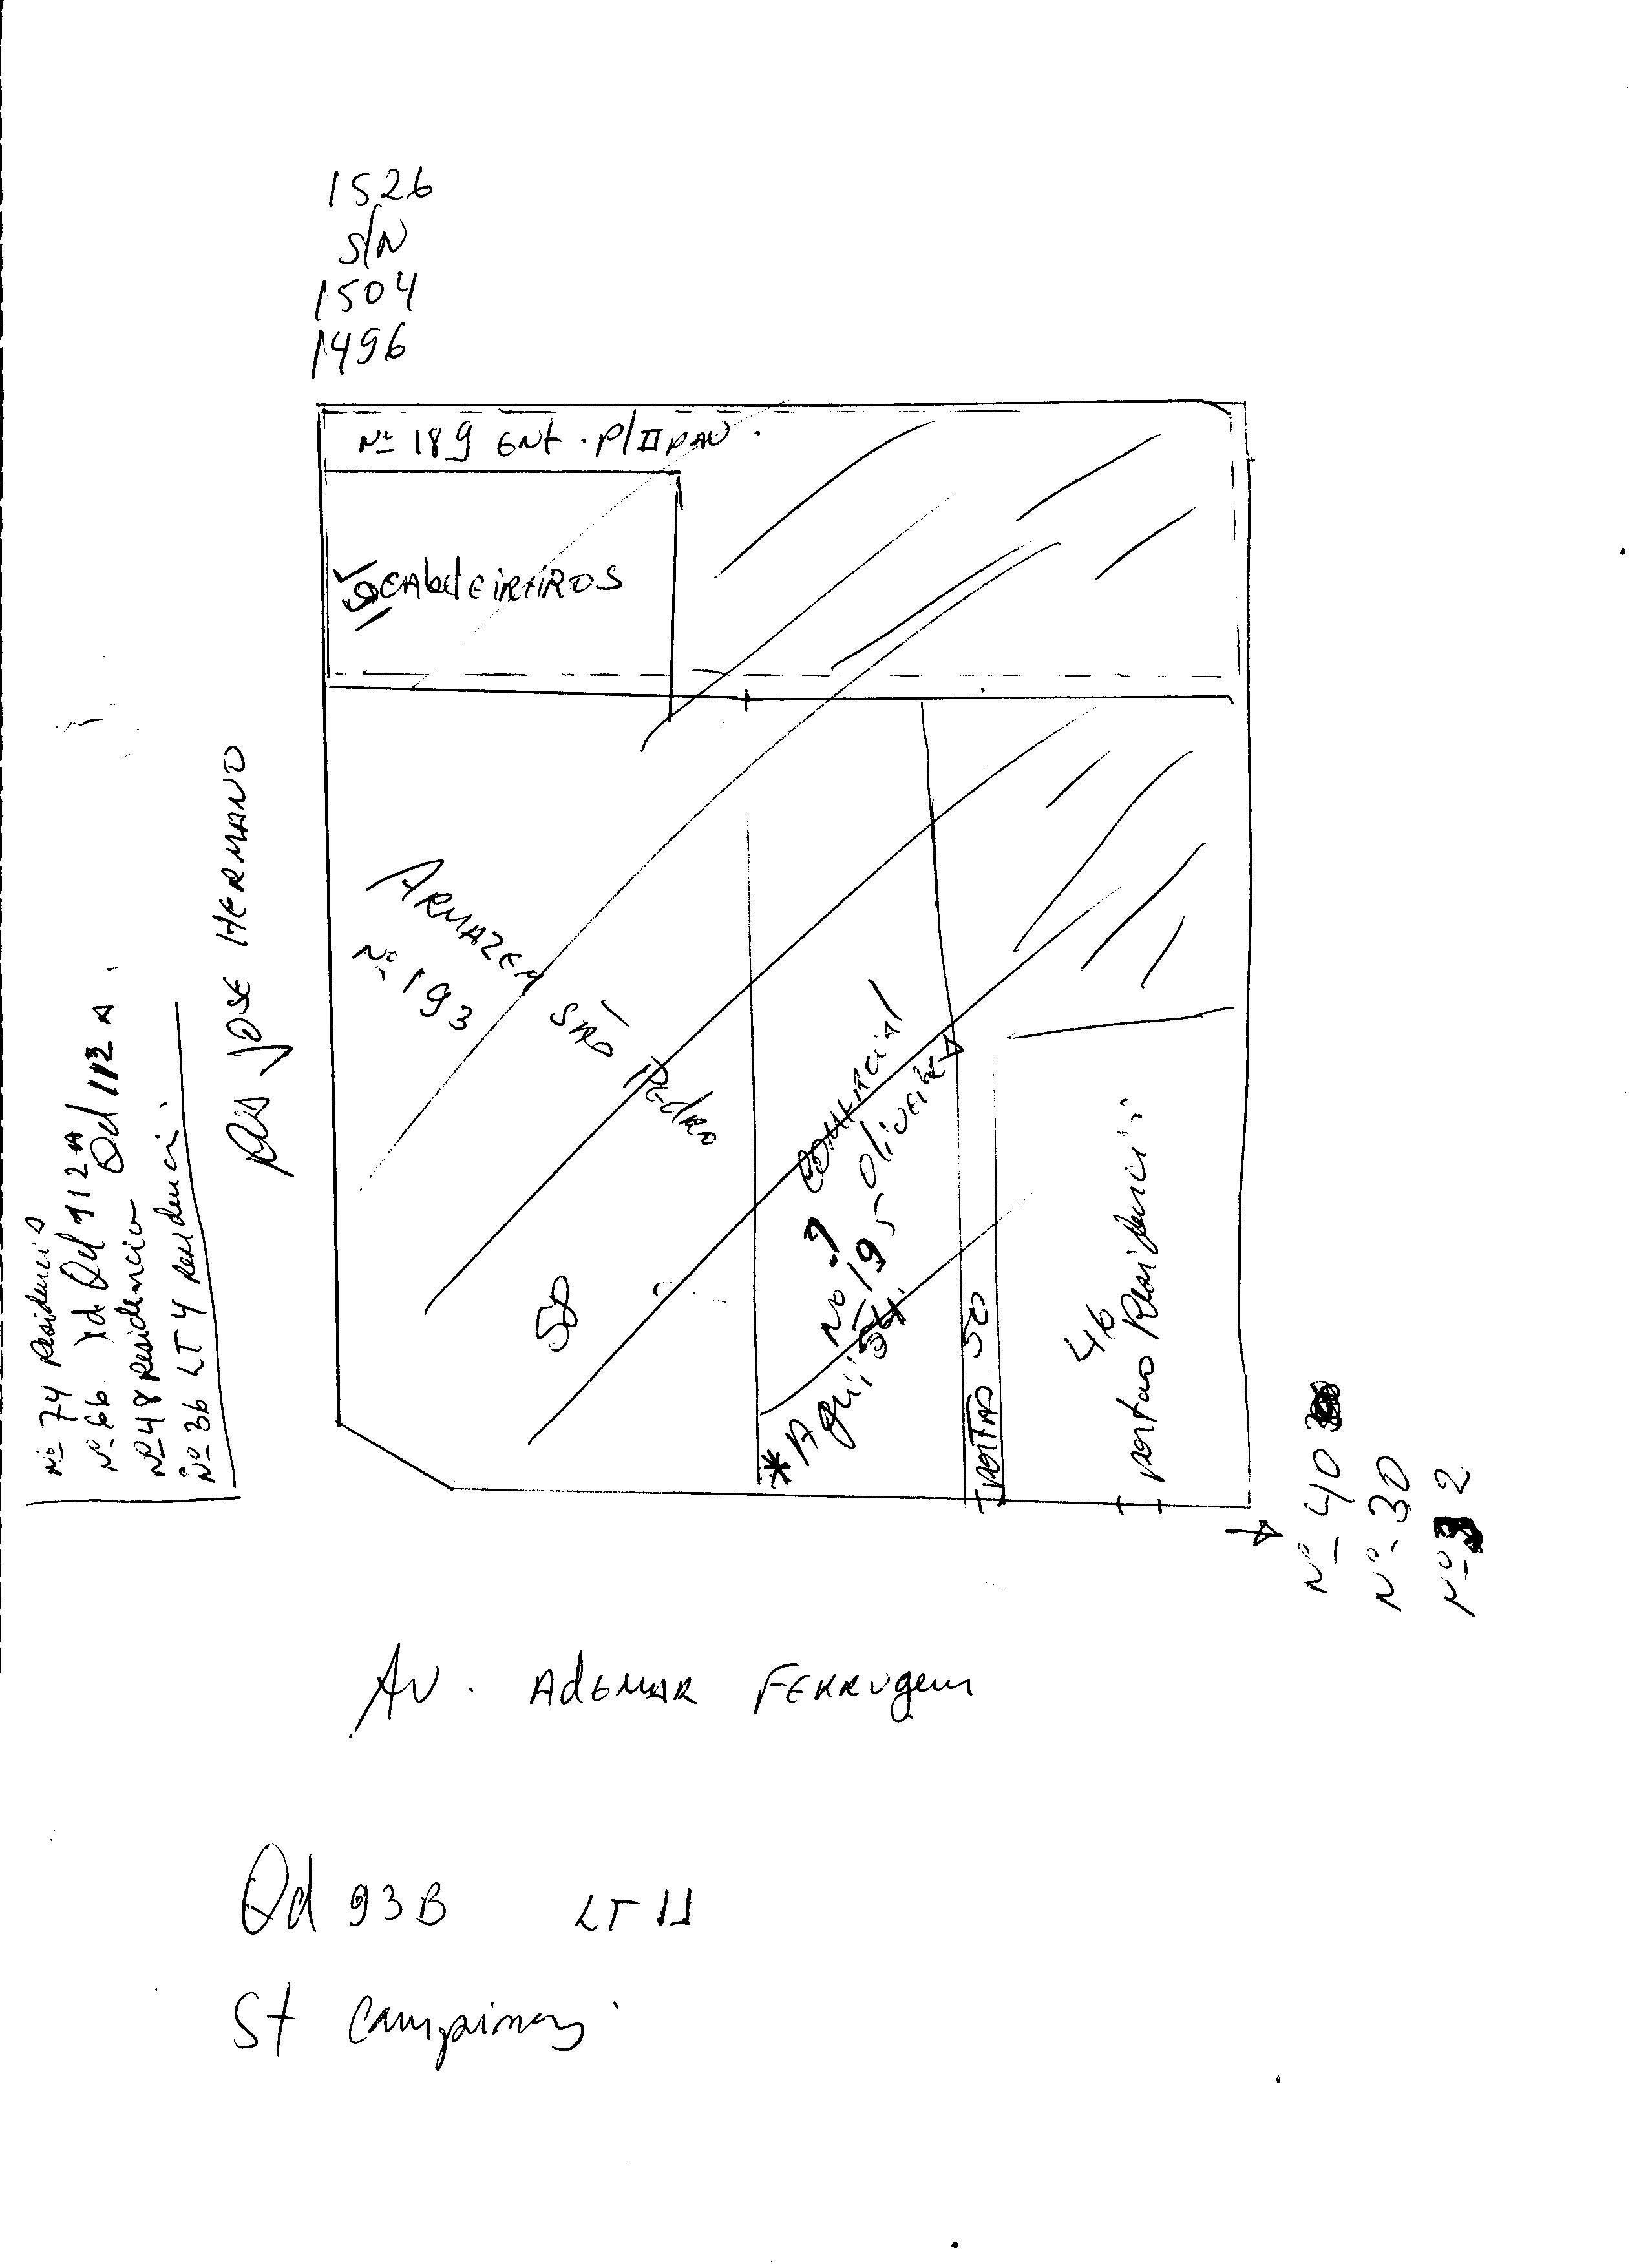 1526
S/N
1504
1496
Nº 189 Ent. P/II PAV.
CABELEIREIROS
ARMAZEM SÃO PEDRO
Nº 193
50
COMERCIAL OLIVEIRA
Nº 195
* Aqui
PORTÃO 50
46
portão Residencia
RUA JOSE HERMANO
Nº 74 Residencia
Nº 66 Qd 112 A
Nº 48 Residencia Qd 112 A.
Nº 36 LT 4 Residencia
Nº 40
Nº 30
Nº 32
AV. ADEMAR FERRUGEM
Qd 93B LT 11
St Campinas